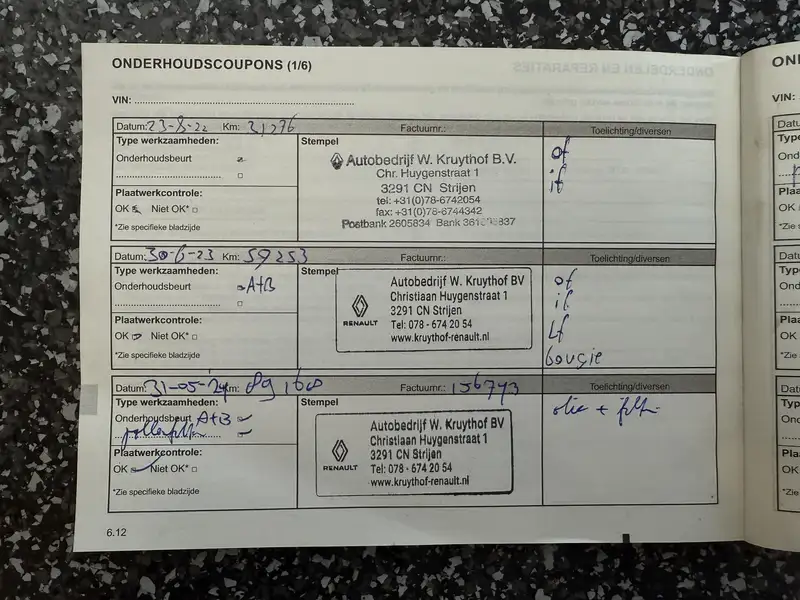 ONDERHOUDSCOUPONS (1/6)
VIN:
Datum: 23-8-22 Km: 31276 Factuurnr.: Toelichting/diversen
Type werkzaamheden: Stempel
Onderhoudsbeurt
Plaatwerkcontrole:
OK Niet OK*
*Zie specifieke bladzijde
Autobedrijf W. Kruythof B.V.
Chr. Huygenstraat 1
3291 CN Strijen
tel: +31(0)78-6742054
fax: +31(0)78-6744342
Postbank 2605834 Bank
of
if
Datum: 30-6-23 Km: 59253 Factuurnr.: Toelichting/diversen
Type werkzaamheden: Stempel
Onderhoudsbeurt A+B
Plaatwerkcontrole:
OK Niet OK*
*Zie specifieke bladzijde
RENAULT
Autobedrijf W. Kruythof BV
Christiaan Huygenstraat 1
3291 CN Strijen
Tel: 078 - 674 20 54
www.kruythof-renault.nl
of
if
Lf
bougie
Datum: 31-05-24 Km: 89160 Factuurnr.: 156743 Toelichting/diversen
Type werkzaamheden: Stempel
Onderhoudsbeurt A+B
pollenfilter
Plaatwerkcontrole:
OK Niet OK*
*Zie specifieke bladzijde
RENAULT
Autobedrijf W. Kruythof BV
Christiaan Huygenstraat 1
3291 CN Strijen
Tel: 078 - 674 20 54
www.kruythof-renault.nl
olie + filter
6.12
VIN: